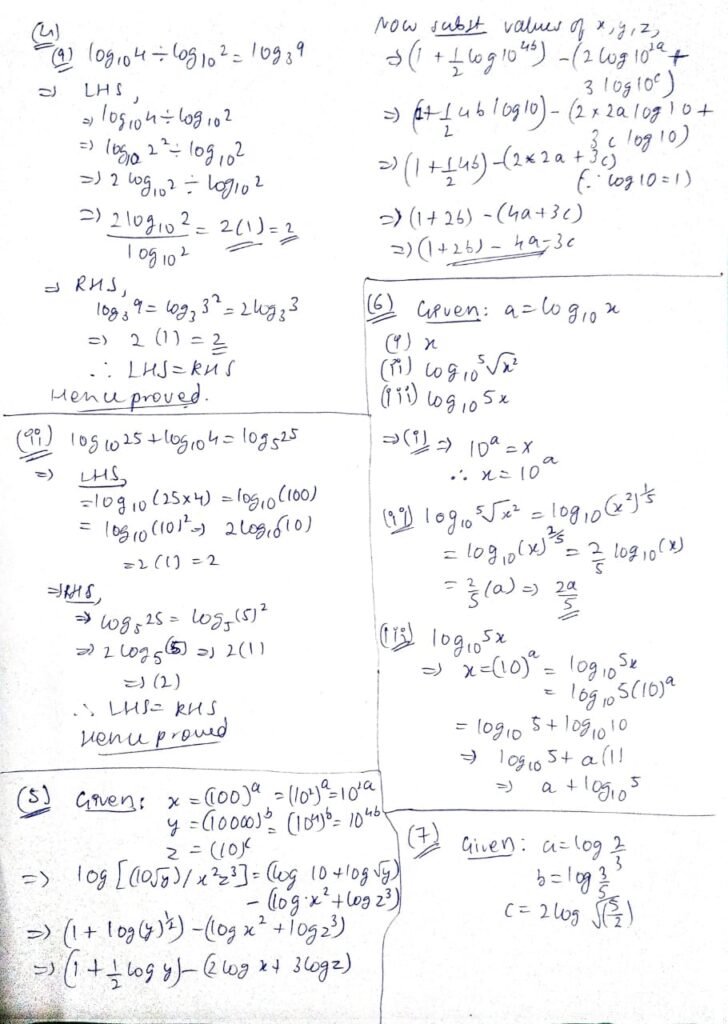 (4)
(i) log₁₀4 ÷ log₁₀2 = log₃9
⇒ LHS,
⇒ log₁₀4 ÷ log₁₀2
⇒ log₁₀2² ÷ log₁₀2
⇒ 2 log₁₀2 ÷ log₁₀2
⇒ 2log₁₀2 / log₁₀2 = 2(1) = 2
⇒ RHS,
log₃9 = log₃3² = 2log₃3
⇒ 2(1) = 2
∴ LHS = RHS
Hence proved.
(ii) log₁₀25 + log₁₀4 = log₅25
⇒ LHS,
= log₁₀(25×4) = log₁₀(100)
= log₁₀(10)² ⇒ 2log₁₀(10)
= 2(1) = 2
⇒ RHS,
⇒ log₅25 = log₅(5)²
⇒ 2log₅(5) ⇒ 2(1)
⇒ (2)
∴ LHS = RHS
Hence proved
(5) Given: x = (100)ᵃ = (10²)ᵃ = 10²ᵃ
y = (10000)ᵇ = (10⁴)ᵇ = 10⁴ᵇ
z = (10)ᶜ
⇒ log[(10√y)/x²z³] = (log 10 + log √y)
- (log x² + log z³)
⇒ (1 + log(y)^½) - (log x² + log z³)
⇒ (1 + ½ log y) - (2 log x + 3 log z)
Now subst values of x, y, z,
⇒ (1 + ½ log 10⁴ᵇ) - (2 log 10²ᵃ +
3 log 10ᶜ)
⇒ (1 + ½ 4b log 10) - (2 × 2a log 10 +
3c log 10)
⇒ (1 + ½ 4b) - (2 × 2a + 3c)
(∵ log 10 = 1)
⇒ (1 + 2b) - (4a + 3c)
⇒ (1 + 2b) - 4a - 3c
(6) Given: a = log₁₀x
(i) x
(ii) log₁₀ ⁵√x²
(iii) log₁₀5x
⇒ (i) ⇒ 10ᵃ = x
∴ x = 10ᵃ
(ii) log₁₀ ⁵√x² = log₁₀(x²)^⅕
= log₁₀(x)^⅖ = ⅖ log₁₀(x)
= ⅖(a) ⇒ 2a/5
(iii) log₁₀5x
⇒ x = (10)ᵃ = log₁₀5x
= log₁₀5(10)ᵃ
= log₁₀5 + log₁₀10
⇒ log₁₀5 + a(1)
⇒ a + log₁₀5
(7) Given: a = log 2/3
b = log 3/5
c = 2 log √(5/2)